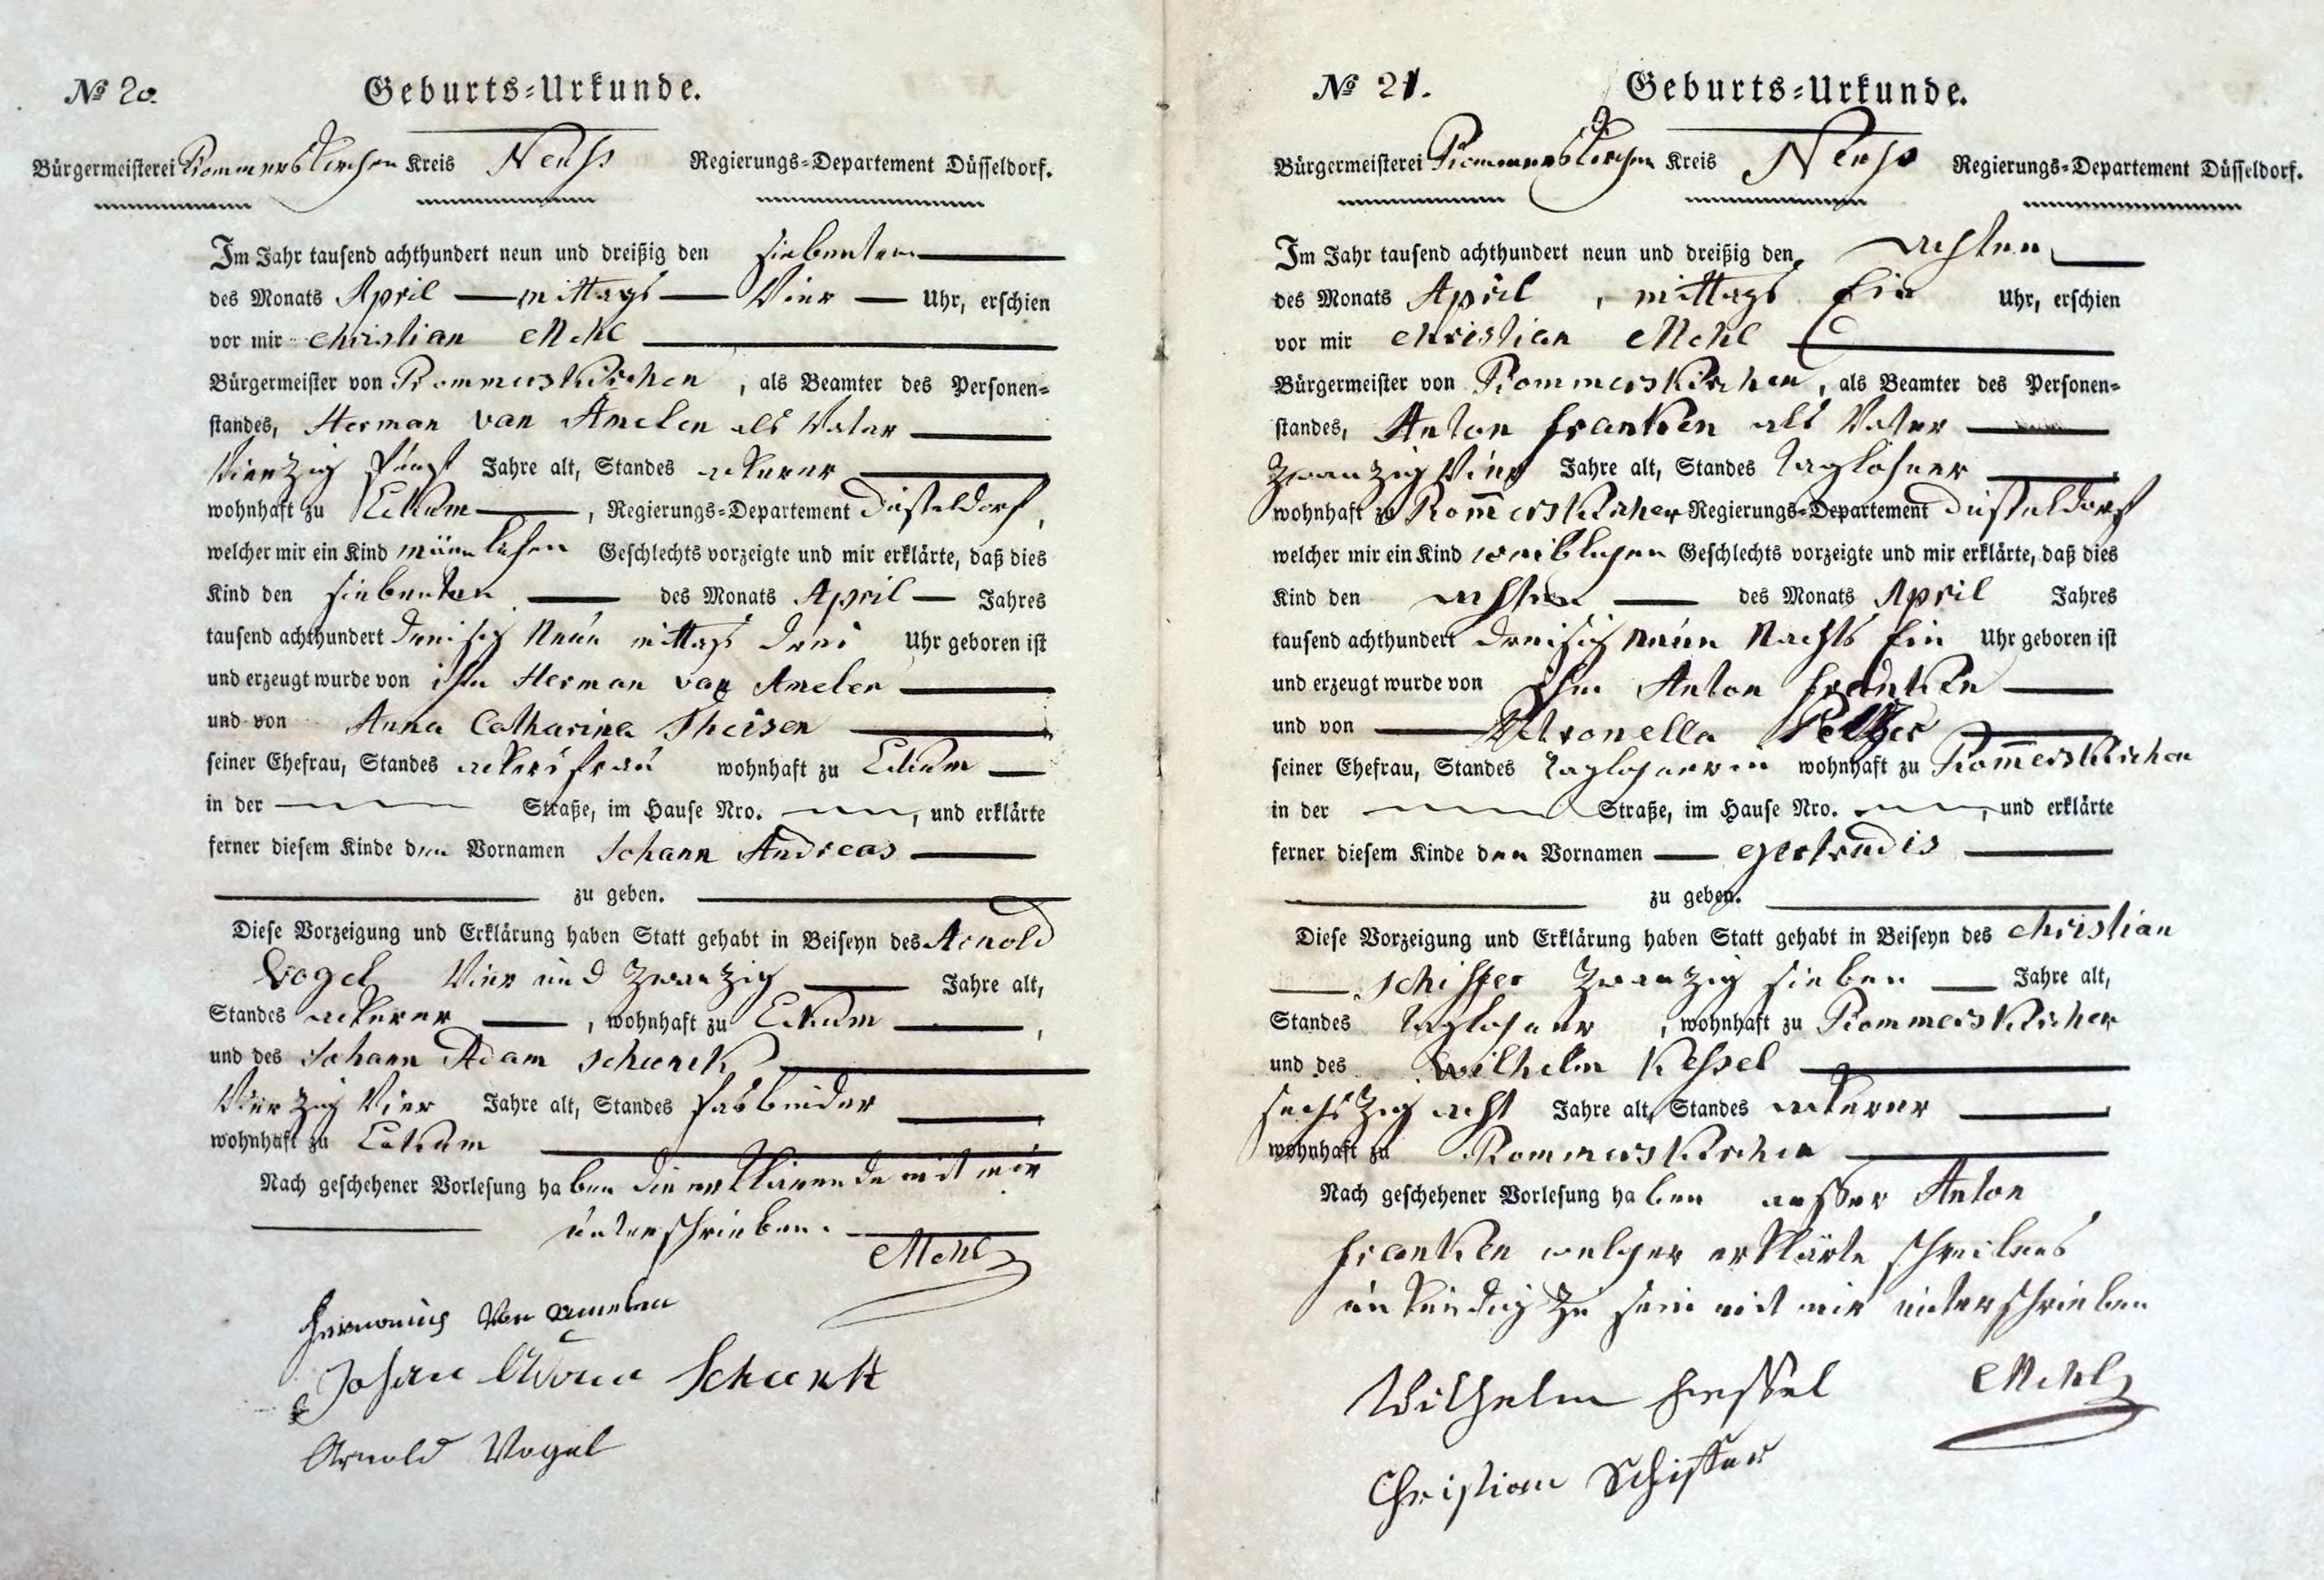 № 20.
Geburts-Urkunde.
Bürgermeisterei Rommerskirchen Kreis Neuss Regierungs-Departement Düsseldorf.
Im Jahr tausend achthundert neun und dreißig den siebenten
des Monats April mittags Vier Uhr, erschien
vor mir Christian Mehl
Bürgermeister von Rommerskirchen, als Beamter des Personen-
standes, Herman van Amelen als Vater
Vierzig fünf Jahre alt, Standes ackerer
wohnhaft zu Eckum, Regierungs-Departement Düsseldorf,
welcher mir ein Kind männlichen Geschlechts vorzeigte und mir erklärte, daß dies
Kind den siebenten des Monats April Jahres
tausend achthundert dreisig Neun mittags drei Uhr geboren ist
und erzeugt wurde von ihm Herman van Amelen
und von Anna Catharina Theisen
seiner Ehefrau, Standes ackersfrau wohnhaft zu Eckum
in der Straße, im Hause Nro. , und erklärte
ferner diesem Kinde den Vornamen Johann Andreas
zu geben.
Diese Vorzeigung und Erklärung haben Statt gehabt in Beiseyn des Arnold
Vogel Vier und zwanzig Jahre alt,
Standes ackerer, wohnhaft zu Eckum,
und des Johann Adam Schunck
Vierzig Vier Jahre alt, Standes fasbinder
wohnhaft zu Eckum
Nach geschehener Vorlesung haben die erklärende mit mir
unterschrieben.
Mehl
Hermanus Van Amelen
Johan Adam Schunck
Arnold Vogel
№ 21.
Geburts-Urkunde.
Bürgermeisterei Rommerskirchen Kreis Neuss Regierungs-Departement Düsseldorf.
Im Jahr tausend achthundert neun und dreißig den achten
des Monats April, mittags Ein Uhr, erschien
vor mir Christian Mehl
Bürgermeister von Rommerskirchen, als Beamter des Personen-
standes, Anton Franken als Vater
zwanzig Vier Jahre alt, Standes Taglohner
wohnhaft zu Rom̅erskirchen Regierungs-Departement Düsseldorf
welcher mir ein Kind weiblichen Geschlechts vorzeigte und mir erklärte, daß dies
Kind den achten des Monats April Jahres
tausend achthundert dreisig neun Nachts Ein Uhr geboren ist
und erzeugt wurde von Ihm Anton Franken
und von Petronella Peltzer
seiner Ehefrau, Standes Taglohnerin wohnhaft zu Rom̅erskirchen
in der Straße, im Hause Nro. , und erklärte
ferner diesem Kinde den Vornamen Gertrudis
zu geben.
Diese Vorzeigung und Erklärung haben Statt gehabt in Beiseyn des Christian
Schiffer zwanzig sieben Jahre alt,
Standes Taglohner, wohnhaft zu Rommerskirchen
und des Wilhelm Kessel
sechszig acht Jahre alt, Standes ackerer
wohnhaft zu Rommerskirchen
Nach geschehener Vorlesung haben ausser Anton
Franken welcher erklärte schreibens
unkundig zu sein mit mir unterschrieben
Mehl
Wilhelm Kessel
Christian Schiffer